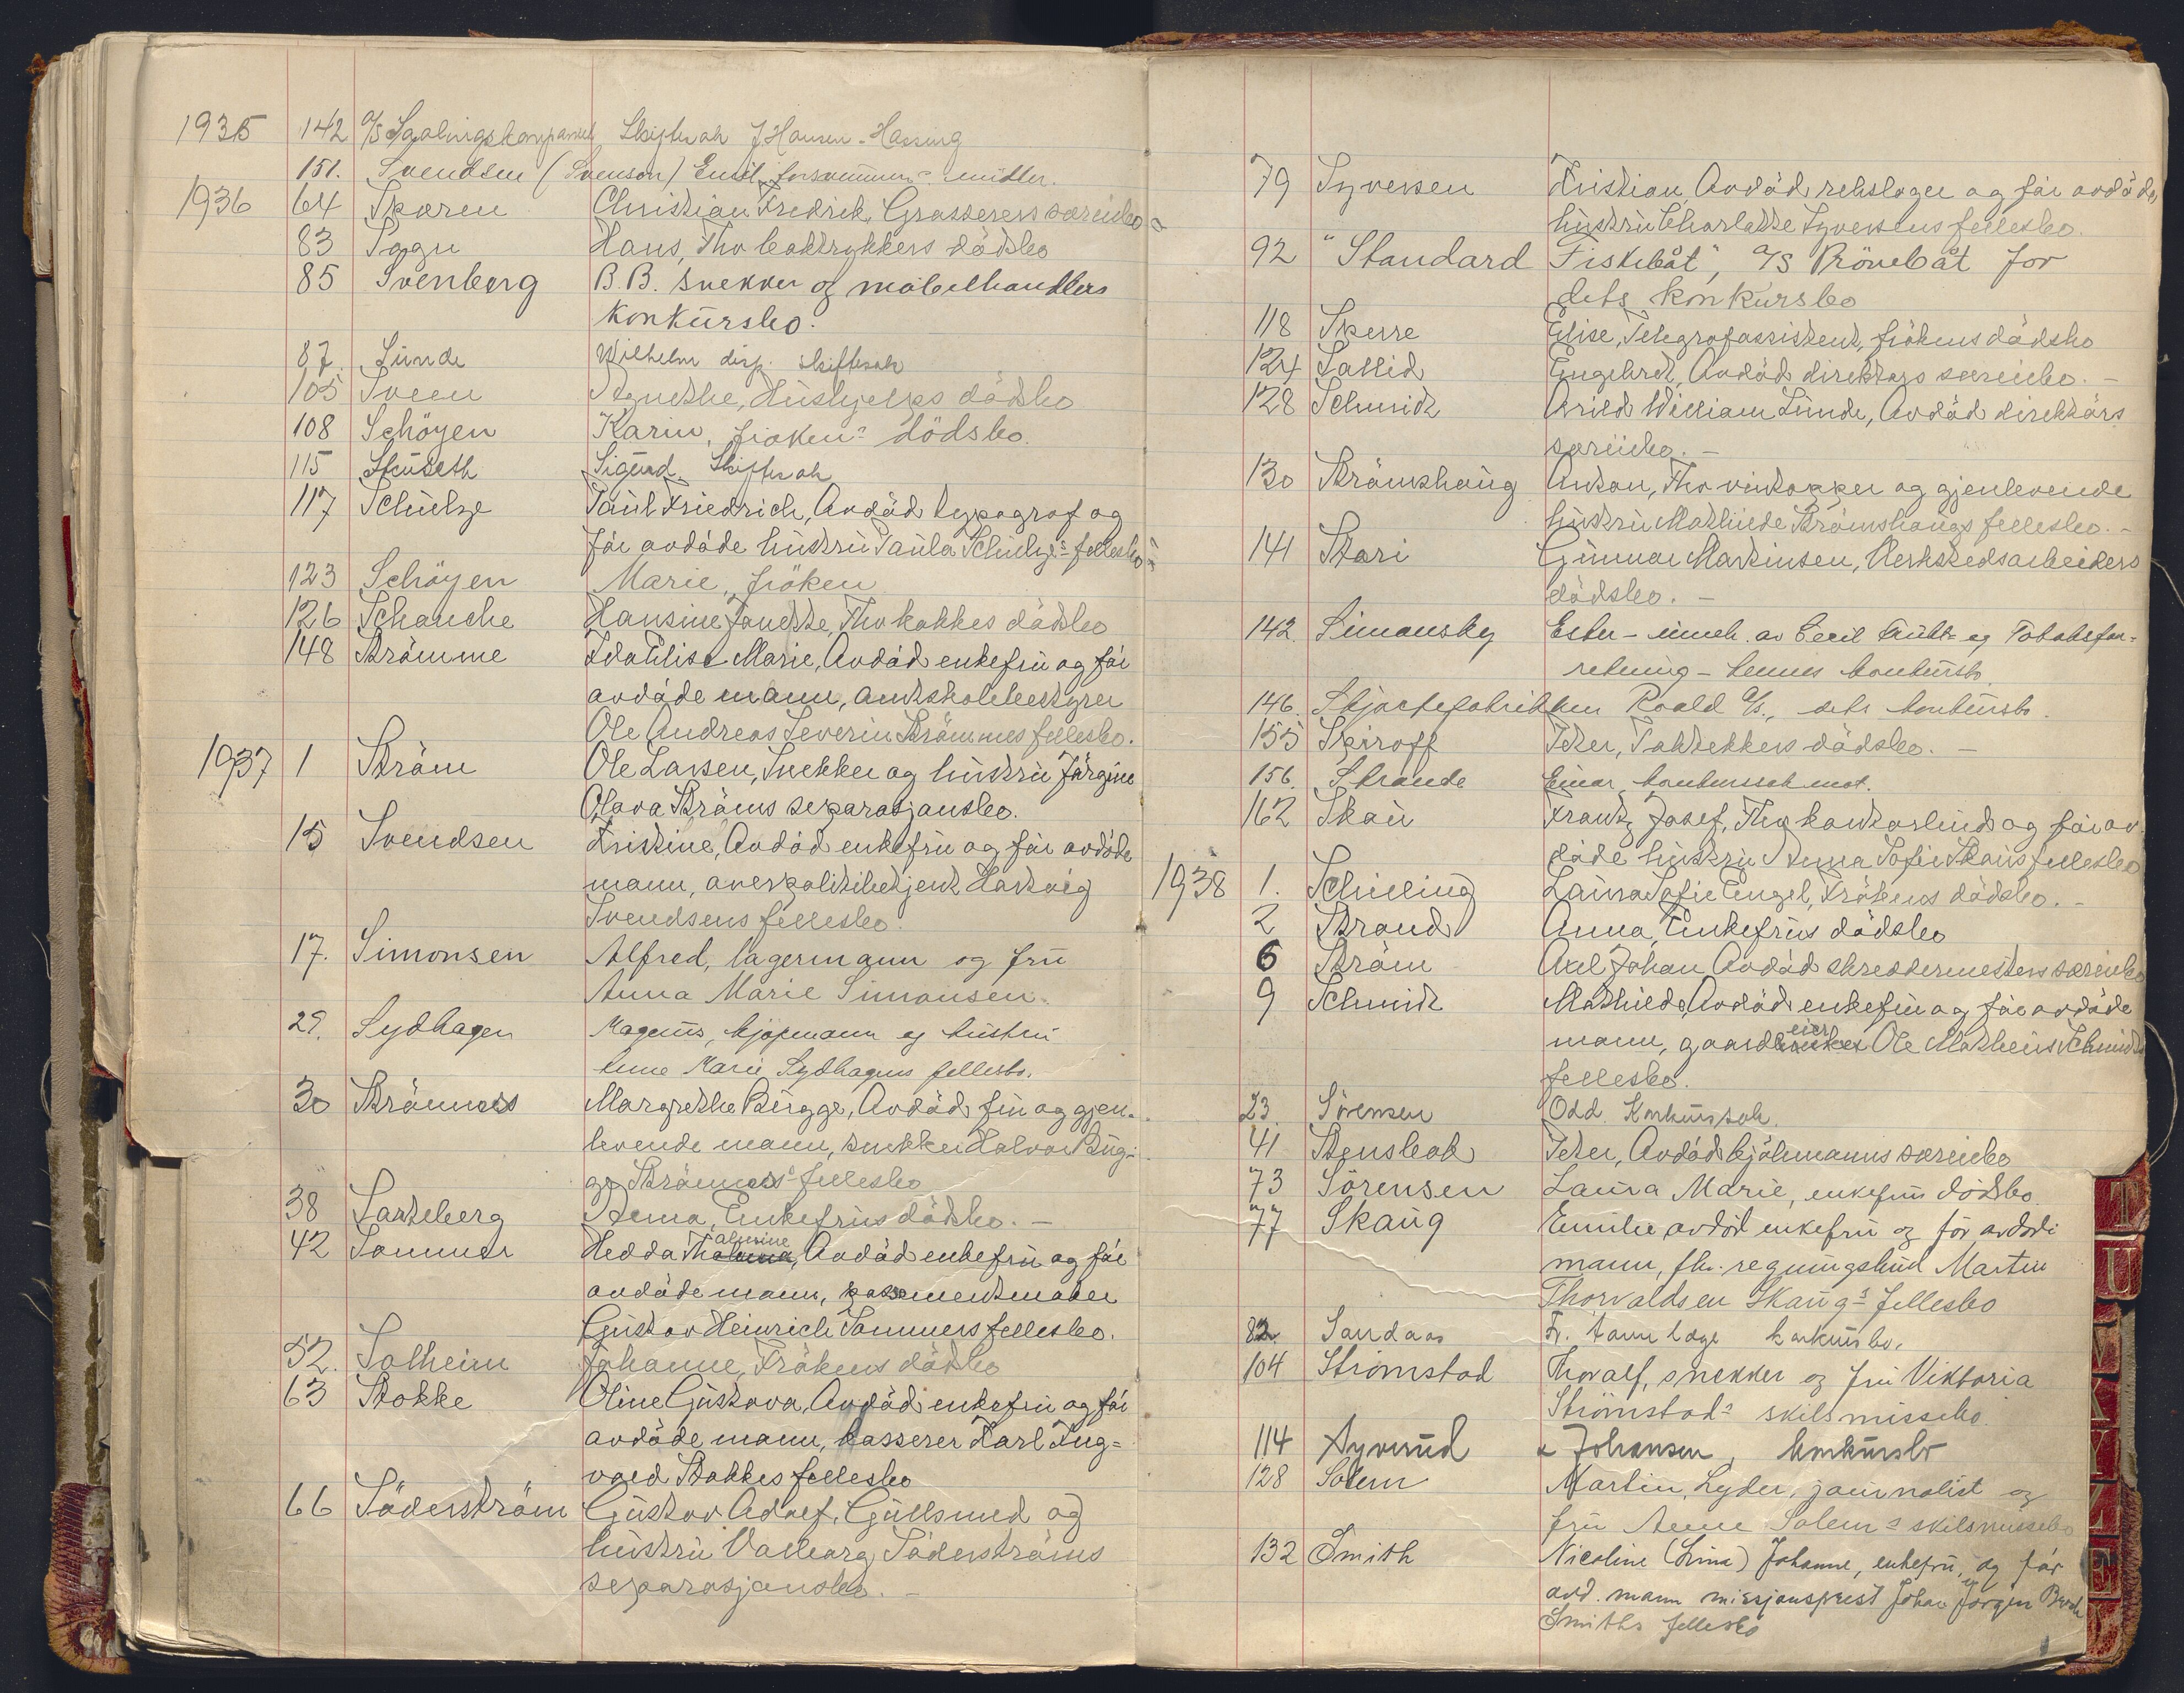 1935 142 A/S Skiftesak J. Hansen-Hassing
151. Svendsen (Svenson) Emil, midler.
1936 64 Skaren Christian Fredrik, Grosserers særeiebo
83 Sogn Hans, Fhv boktrykkers dödsbo
85 Svenberg B.B. snekker og möbelhandlers
konkursbo.
87. Lunde Wilhelm disp. skiftesak
105 Sveen Agnethe, Hushjelps dödsbo
108 Schöyen Karin, frökens dödsbo.
115 Stuseth Sigurd. Skiftesak
117 Schulze Paul Friedrich, Avdöd typograf og
för avdöde hustru Paula Schulze's fellesbo
123 Schöyen Marie, fröken
126 Schanche Hansine Janette, Fhv kokkes dödsbo
148 Strömme Ida Elise Marie, Avdöd enkefru og för
avdöde mann, amtskolebestyrer
Ole Andreas Severin Strömmes fellesbo.
1937 1 Ström Ole Larsen, Snekker og hustru Jörgine
Olava Ströms separasjonsbo.
15 Svendsen Kristine, Avdöd enkefru og för avdöde
mann, overpolitibetjent Hartvig
Svendsens fellesbo.
17. Simonsen Alfred, lagermann og fru
Anna Marie Simonsen.
29. Sydhagen Magnus, kjöpmann og hustru
Anne Marie Sydhagens fellesbo.
30 Strömnes Margrethe Brygge, Avdöd fru og gjen-
levende mann, snekker Halvor Bryg-
ge Strömnes' fellesbo
38 Sarteberg Anna, Enkefrus dödsbo. -
42 Sommer Hedda Thalmine, Avdöd enkefru og för
avdöde mann, possementmaker
Gustav Heinrich Sommers fellesbo.
52. Solheim Johanne, Frökens dödsbo
63 Stokke Oline Gustava, Avdöd enkefru og för
avdöde mann, kasserer Karl Ing=
vald Stokkes fellesbo
66 Söderström Gustav Adolf, Gullsmed og
hustru Valborg Söderströms
separasjonsbo. -
79 Syversen Kristian, Avdöd rebslager og för avdöde
hustru Charlotte Syversens fellesbo.
92 "Standard Fiskebåt", A/S Prövebåt for
dets konkursbo
118 Skerre Elise, Telegrafassistent, frökens dödsbo
124 Sallid Engebret, Avdöd direktörs særeiebo. -
128 Schmidt Arild William Lunde, Avdöd direktörs
særeiebo. -
130 Strömshaug Anton, Fhv vintapper og gjenlevende
hustru Mathilde Strömshaugs fellesbo. -
141 Stari Gunnar Martinsen, Verkstedsarbeiders
dödsbo. -
142. Simonsky Ester - inneh. av Cecil Frukt og Tobakkfor=
retning - hennes konkursbo.
146. Skjortefabrikken Roald A/S., dets konkursbo.
155 Skiroff Peter, Taktekkers dödsbo. -
156. Strande Einar, konkurssak mot.
162 Skau Frantz Josef, Fhv kontorbud og för av-
döde hustru Anna Sofie Skaus fellesbo
1938 1. Schilling Laura Sofie Engel, Frökens dödsbo. -
2 Strand Anna, Enkefrus dödsbo
6 Ström Axel Johan, Avdöd skreddermesters særeiebo
9 Schmidt Mathilde, Avdöd enkefru og för avdöde
mann, gaardeier Ole Matheus Schmidts
fellesbo.
23. Sörensen Odd. Konkurssak.
41 Stensbak Peter, Avdöd kjöbmanns særeiebo
73 Sörensen Laura Marie, enkefrus dödsbo
77 Skaug Emilie, avdöd enkefru og för avdöde
mann, fhv. regningsbud Martin
Thorvaldsen Skaug's fellesbo
82 Sandaas Fr. konkursbo.
104 Strömstad Thoralf, snekker og fru Viktoria
Strömstad's skilsmissebo.
114 Syverud & Johansen, konkursbo
128 Solem Martin Lyder, journalist og
fru Anne Solem's skilsmissebo
132 Smith Nicoline (Sina) Johanne, enkefru, og för
avd. mann misjonsprest Johan Jörgen
Smiths fellesbo
T
U
V